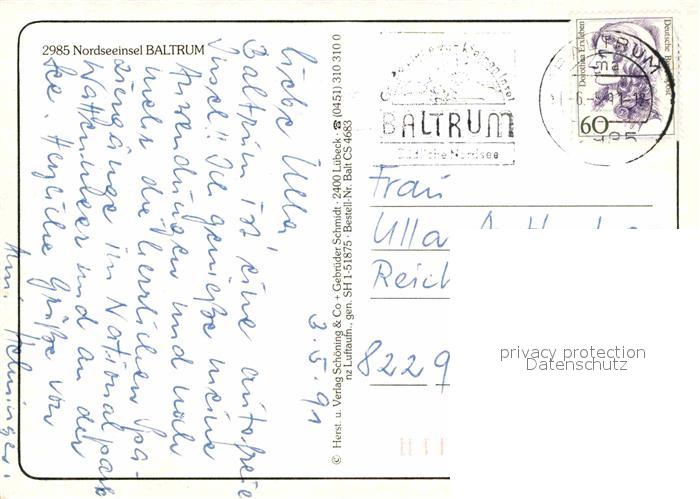 2985 Nordseeinsel BALTRUM
3.5.91
Liebe Ulla,
Baltrum ist eine autofreie
Insel!! Ich genieße meine
Anwendungen und noch
mehr die herrlichen Spa-
ziergänge im Nationalpark
Wattenmeer und an der
See. Herzliche Grüße von
© Herst. u. Verlag Schöning & Co + Gebrüder Schmidt · 2400 Lübeck ☎ (0451) 310 310 0
nz Luftaufn., gen. SH 1-51875 · Bestell-Nr. Balt CS 4683
BALTRUM
Nordsee
BALTRUM
Dorothea Erxleben
Deutsche Bundespost
60
Frau
Ulla
Reich
8229
privacy protection
Datenschutz